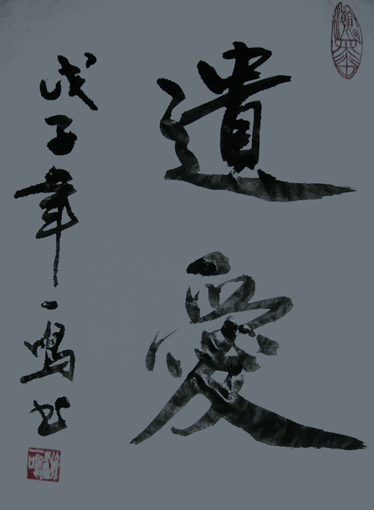 遺愛
戊子年一鳴书